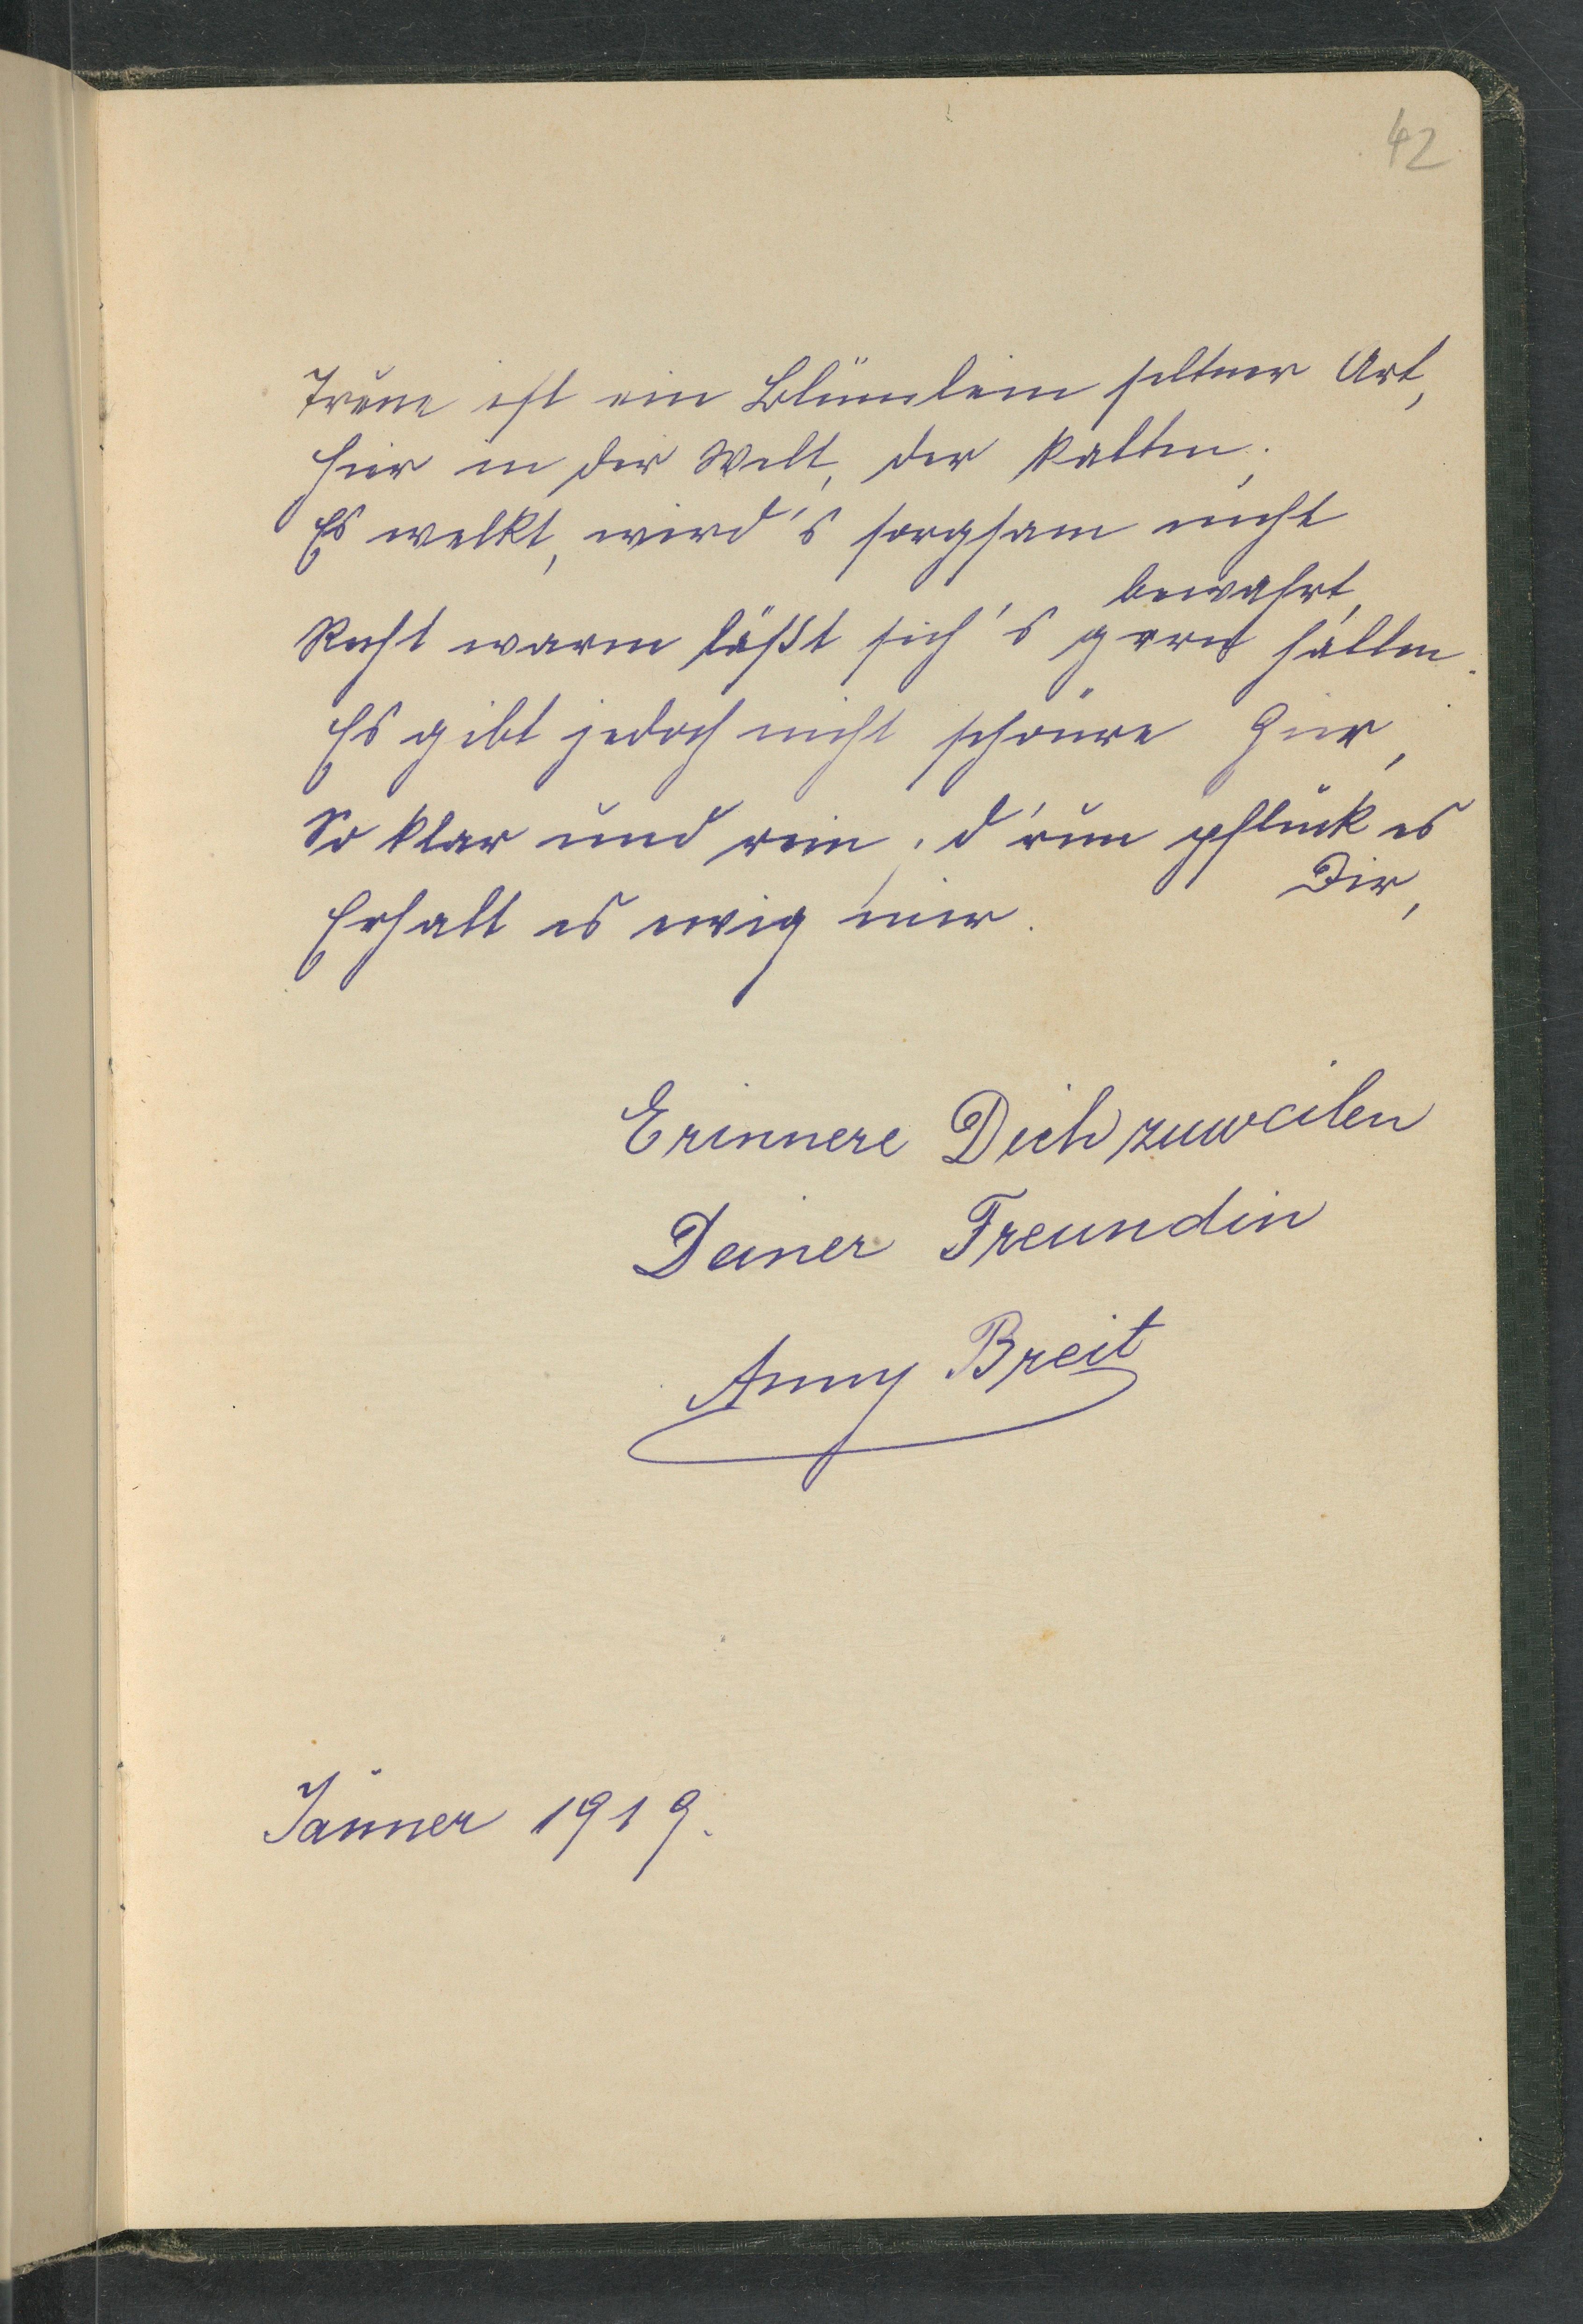 42
Treue ist ein Blümlein seltner Art,
hier in der Welt, der kalten;
Es welkt, wird's sorgsam nicht
bewahrt,
Recht warm läßt sich's gern halten.
Es gibt jedoch nicht schönre
So klar und rein; d'rum pflück es
Dir,
Erhalt es ewig mir.
Erinnere Dich zuweilen
Deiner Freundin
Anny Breit
Jänner 1919.